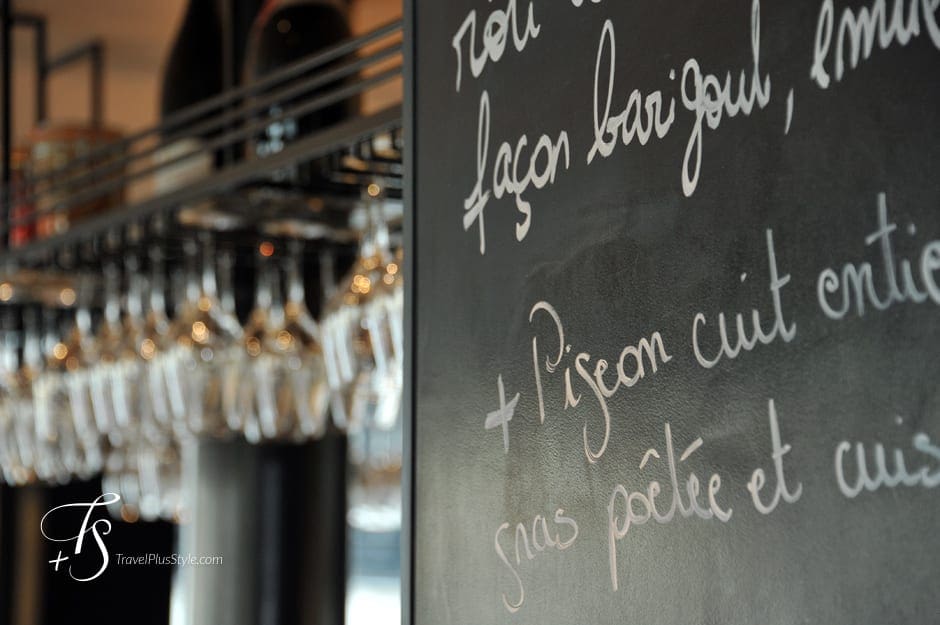 rôti
façon barigoul,
+ Pigeon cuit entie
gras poêtée et cuis
TS
+
TravelPlusStyle.com